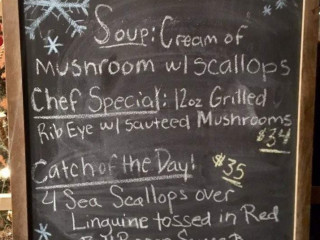 Soup: Cream of
Mushroom w/ scallops
Chef Special: 12oz Grilled
Rib Eye w/ sauteed Mushrooms
$34
Catch of the Day! $35
4 Sea Scallops over
Linguine tossed in Red